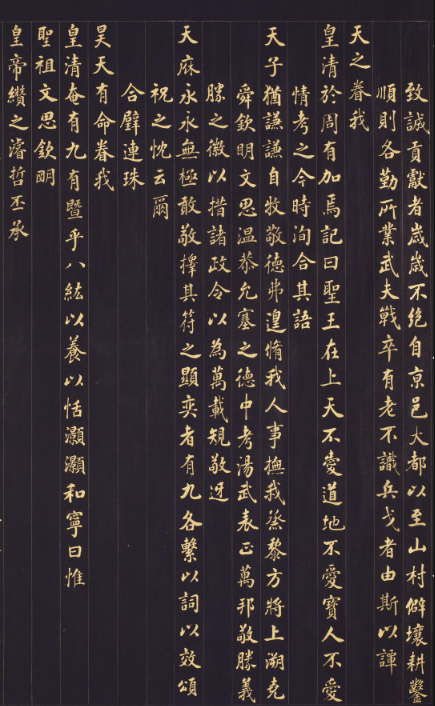 致誠貢獻者歲歲不絕自京邑大都以至山村僻壤耕鑿
順則各勤所業武夫戰卒有老不識兵戈者由斯以譁
天之眷我
皇清於周有加焉記曰聖王在上天不愛道地不愛寶人不愛
情考之今時洵合其語
天子猶謙謙自牧敬德弗遑惰我人事撫我蒸黎方將上溯堯
舜欽明文思温恭允塞之德中考湯武表正萬邦敬勝義
勝之徽以措諸政令以為萬載規敬迓
天庥永永無極敢敬擇其符之顯奕者有九各繫以詞以效頌
祝之忱云爾
合璧連珠
昊天有命眷我
皇清奄有九有暨乎八紘以養以恬灝灝和寧曰惟
聖祖文思欽明
皇帝纘之濬哲丕承